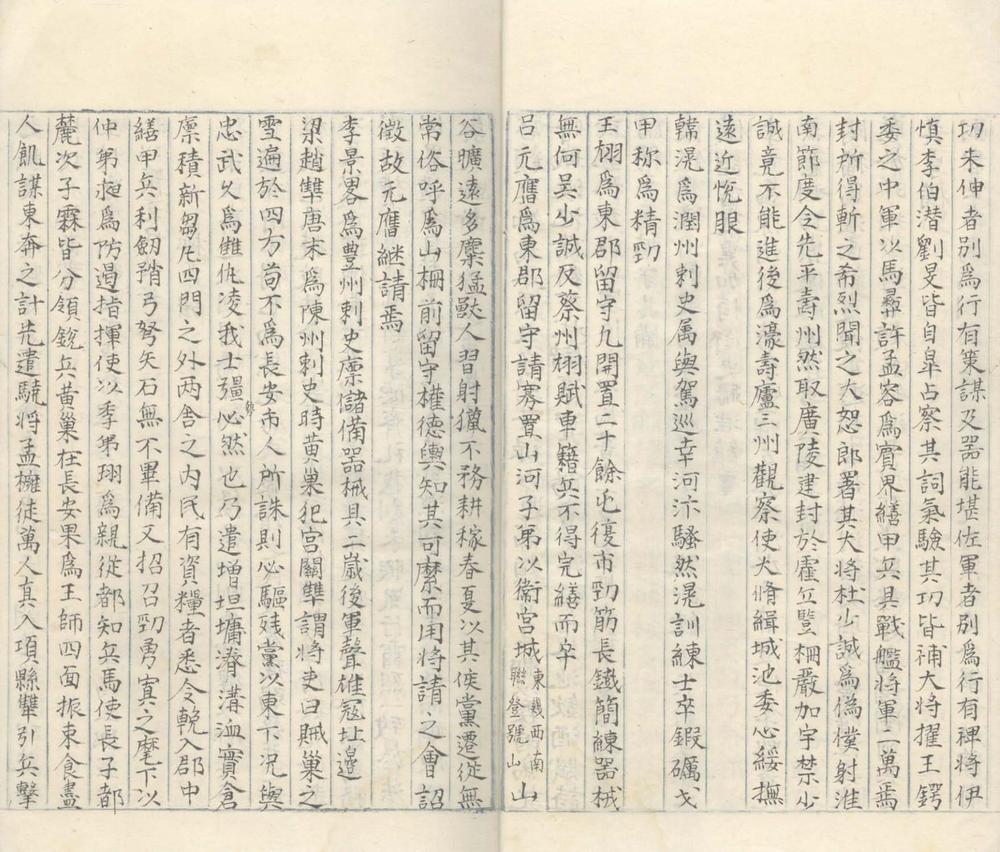 功未伸者別爲行有策謀及器能堪佐軍者別爲行有裨將伊
慎李伯潛劉旻皆自皐占察其詞氣驗其功皆補大將擢王鍔
委之中軍以馬彝許孟容爲賓界繕甲兵具戰艦將軍二萬焉
封所得斬之希烈聞之大恕郎署其大將杜少誠爲僞樸射淮
南節度令先平壽州然取廣陵建封於霍丘竪柵嚴加守禁少
誠竟不能進後爲濠壽廬三州觀察使大脩緝城池委心綏撫
遠近悅眼
韓滉爲潤州刺史属與駕巡幸河汴騷然滉訓練士卒鍛礪戈
甲称爲精勁
王栩爲東郡留守九開置二十餘屯復市勁筋長鐵簡練器械
無何吴少誠反蔡州栩賦車籍兵不得完繕而卒
吕元膺爲東郡留守請募置山河子弟以衞宮城東畿西南聯登號山山
谷曠遠多麋猛獸人習射獵不務耕稼春夏以其侁黨遷徙無
常俗呼爲山柵前留守權德輿知其可縻而用將請之會詔
徵故元膺継請焉
李景畧爲豊州刺史廪儲備器械具二歲後軍聲雄冦北邊
梁趙犨唐末爲陳州刺史時黄巢犯宫關犨謂將吏曰賊巢之
虐遍於四方苟不爲長安市人所誅則必驅残黨以東下况與
忠武久爲讎仇凌我士彊必然也乃遣增垣墉濬溝洫實倉
廪積新芻凡四門之外两舍之内民有資糧者悉令輓入郡中
繕甲兵利劒矟弓弩矢石無不畢備又招召勁勇寘之麾下以
仲弟昶爲防遏指揮使以李弟珝爲親從都知兵馬使長子都
麓次子霖皆分領銳兵黄巢在長安果爲王師四面振束食盡
人飢謀東奔之計先遣驍將孟擁徒萬人真入項縣犨引兵擊